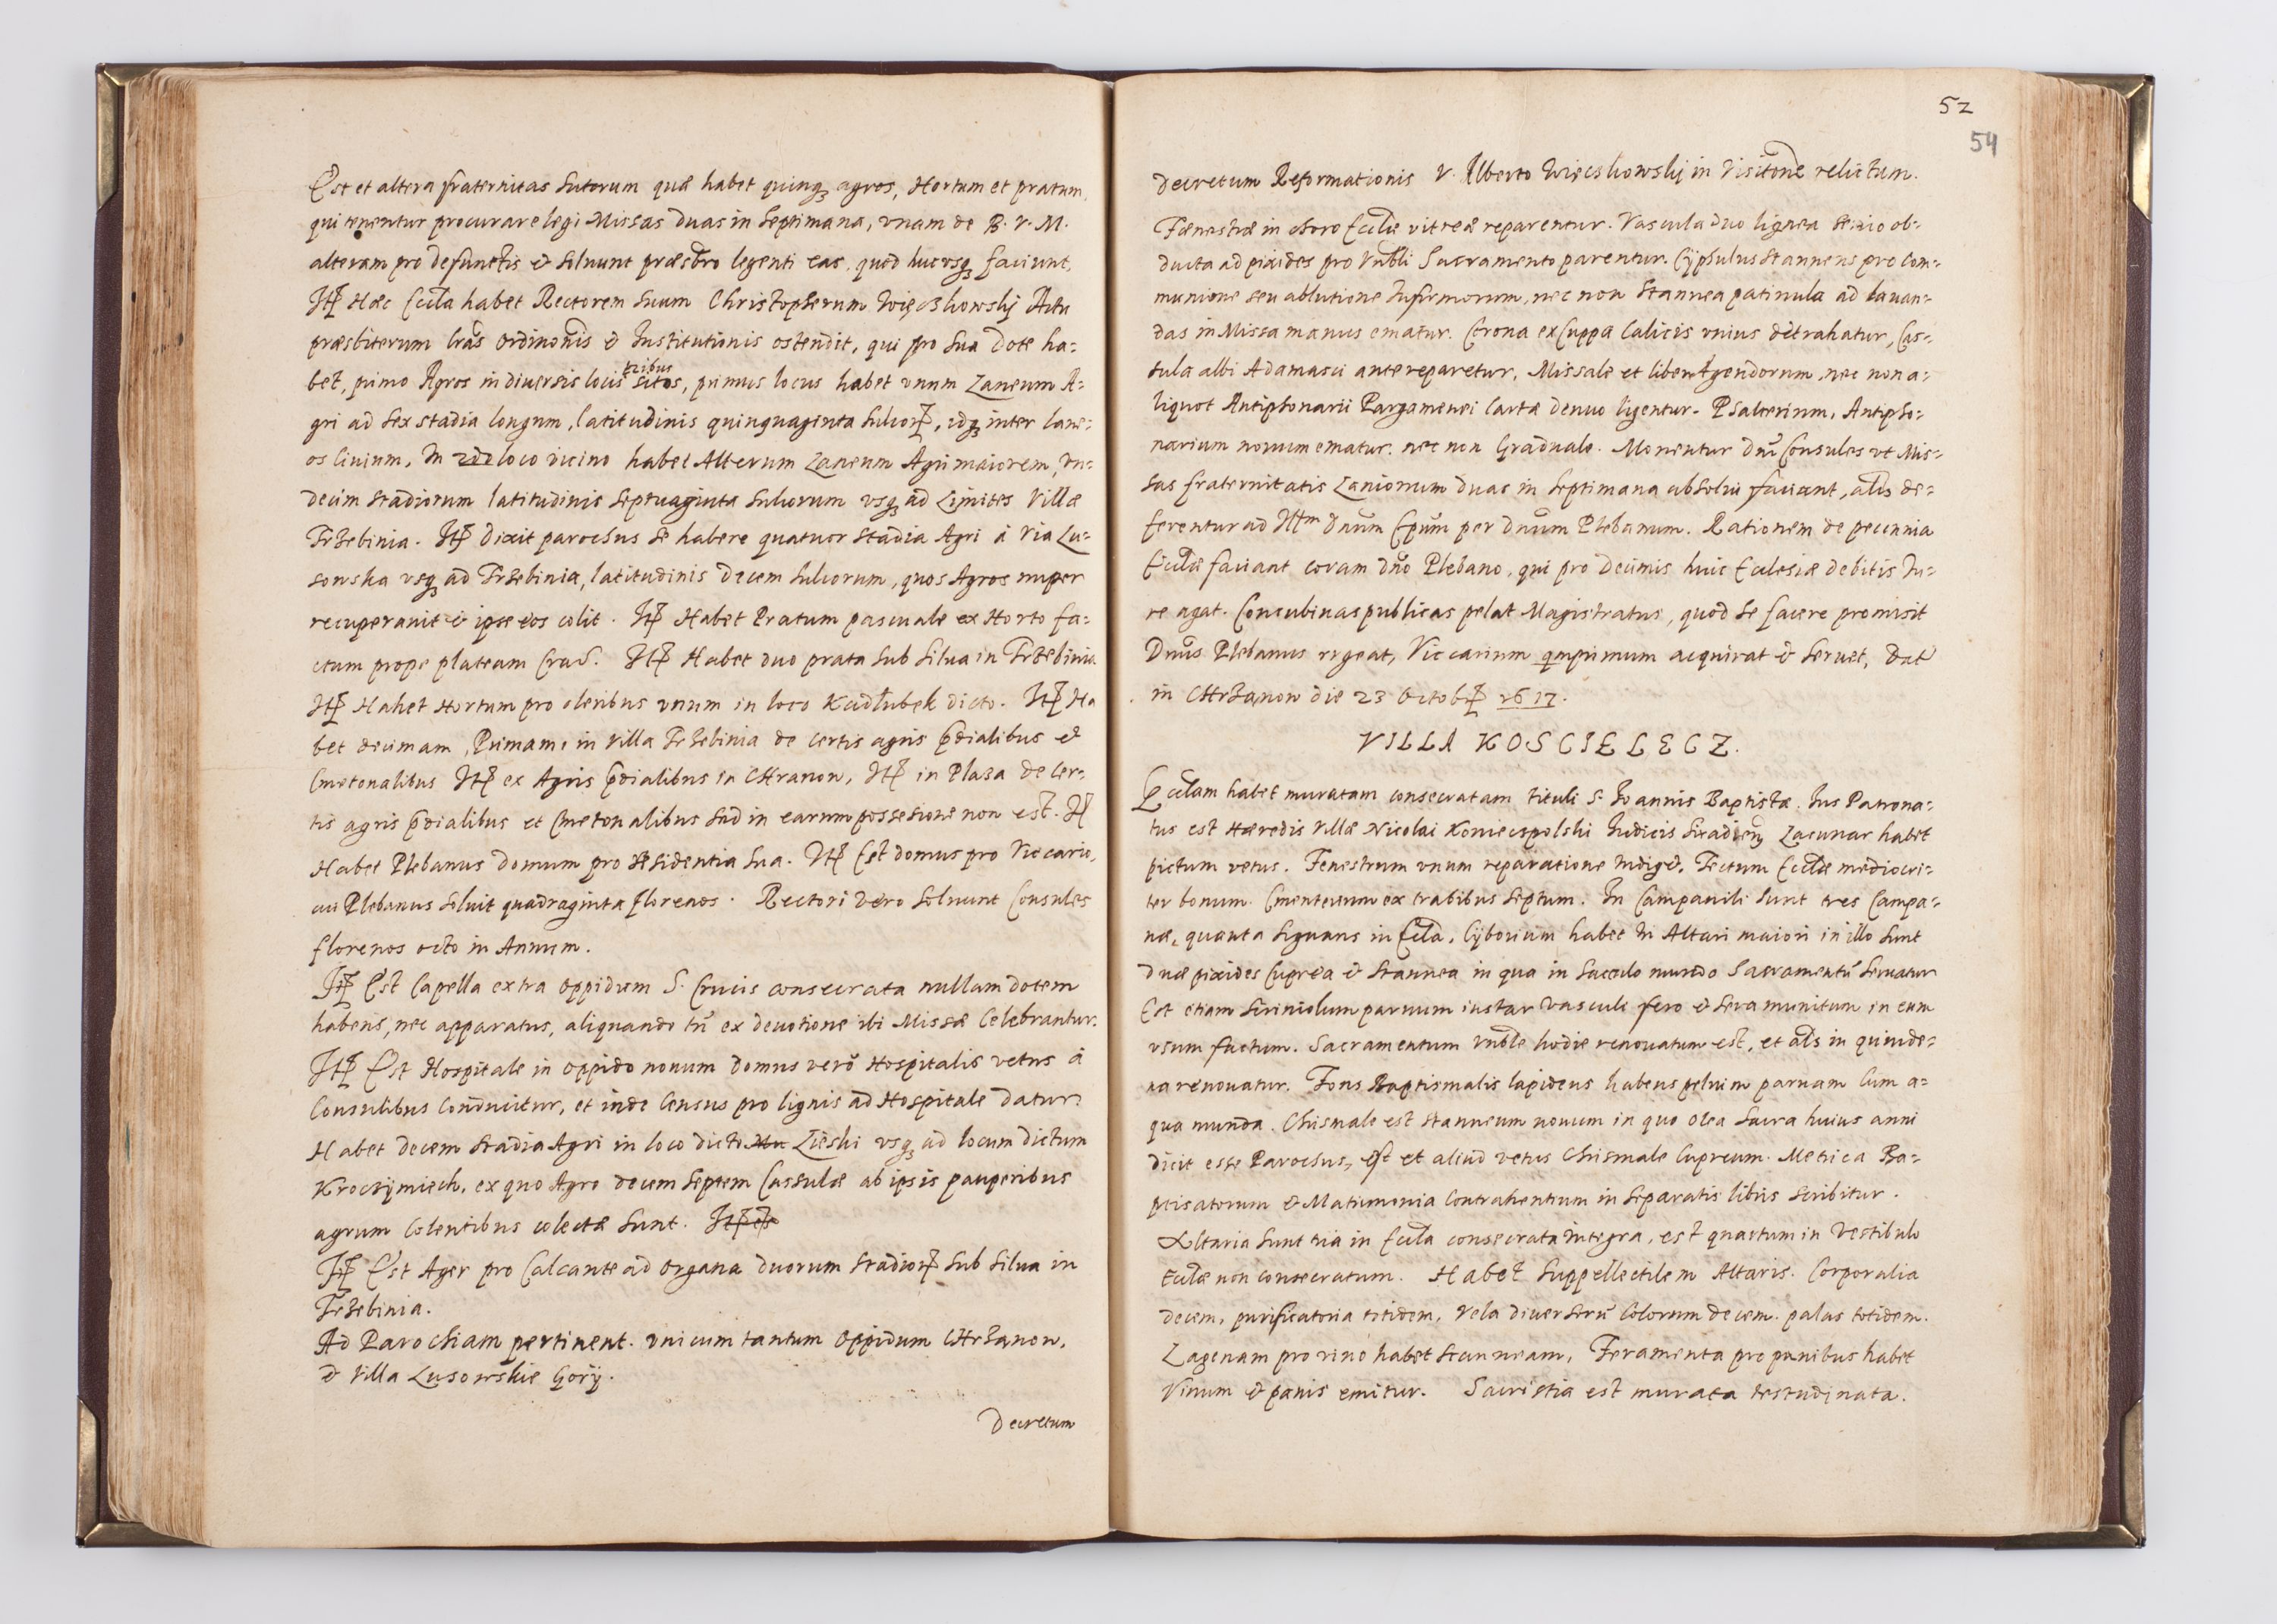 Est et altera fraternitas Sutorum quæ habet quinqꝫ agros, Hortum et pratum,
qui tenentur procurare legi Missas duas in Septimana, vnam de B. V. M.
alteram pro defunctis & Soluunt præsbro legenti eas, quod hucusqꝫ faciunt,
Itẽ Hæc Eccla habet Rectorem suum Christopherum Więczkowskÿ Actu
præsbiterum lras Ordinonis & Institutionis ostendit, qui pro Sua dote ha-
bet, primo Agros in diuersis locis tribus sitos, primus locus habet vnum Laneum A-
gri ad sex stadia longum, latitudinis quinquaginta Sulcorꝝ, idqꝫ inter lane-
os Ciuium, In loco vicino habet Alterum Laneum Agri maiorem, vn-
decim stadiorum latitudinis Septuaginta Sulcorum vsqꝫ ad Limites Villæ
Trzebinia. Itẽ dixit parochus se habere quatuor stadia Agri à via Lu-
sowska vsqꝫ ad Trzebinia, latitudinis decem Sulcorum, quos Agros nuper
recuperauit & ipse eos colit. Itẽ Habet Pratum pascuale ex Horto fa-
ctum prope plateam Crac. Itẽ Habet duo prata Sub Silua in Trzebinia
Itẽ Habet Hortum pro oleribus vnum in loco Kadłubek dicto. Itẽ Ha
bet decimam, Primam, in villa Trzebinia de certis agris prdialibus &
Cmetonalibus Itẽ ex Agris prdialibus in Chranow, Itẽ in Plaza de Cer-
tis agris prdialibus et Cmetonalibus sed in earum possesione non est. It
Habet Plebanus domum pro residentia Sua. Itẽ Est domus pro Viccario,
cui Plebanus Soluit quadraginta florenos. Rectori vero Soluunt Consules
florenos octo in Annum.
Itẽ Est Capella extra Oppidum S. Crucis consecrata nullam dotem
habens, nec apparatus, aliquando tñ ex deuotione ibi Missæ Celebrantur.
Itẽ Est Hospitale in oppido nouum domus verò Hospitalis vetus à
Consulibus Conducitur, et inde Census pro lignis ad Hospitale datur.
Habet decem stadia Agri in loco dicto Lieski vsqꝫ ad locum dictum
Kroczÿmiech, ex quo Agro decem Septem Cassulæ ab ipsis pauperibus
agrum Colentibus colectæ Sunt. Itẽ est
Itẽ Est Ager pro Calcante ad organa duorum stadiorꝝ Sub Silua in
Trzebinia.
Ad Parochiam pertinent. vnicum tantum Oppidum Chrzanow,
& villa Lusowskie Gorÿ.
Decretum
52
54
Decretum Reformationis V. Alberto Więcskowskÿ in Visitone relictum.
Fænestræ in choro Ecclæ vitreæ reparentur. Vascula duo lignea serico ob-
ducta ad pixides pro Vnbli Sacramento parentur. Cÿphulus Stanneus pro Com-
munione seu ablutione Infirmorum, nec non Stannea patinula ad lauan-
das in Missa manus ematur. Corona ex Cuppa Calicis vnius detrahatur, Cas-
sula albi Adamasci ante reparetur, Missale et liber Agendorum, nec non a-
liquot Antiphonarii Pargamenei Cartæ denuo ligentur. Psalterium, Antipho-
narium nouum ematur. nec non Graduale. Monentur Dni Consules vt Mis-
sas fraternitatis Lanionum duas in septimana absolui faciant, alis de-
ferentur ad Illm Dnum Epum per Dnum Plebanum. Rationem de pecunnia
Ecclæ faciant coram Dno Plebano, qui pro decimis huic Ecclesiæ debitis Iu-
re agat. Concubinas publicas pelat Magistratus, quod se facere promisit
Dnus Plebanus vrgeat, Viccarium qmprimum acquirat & seruet, Dat
in Chrzanow die 23 Octobꝝ 1617.
VILLA KOSCIELECZ.
Ecclam habet muratam consecratam tituli S. Ioannis Baptistæ. Ius Patrona-
tus est Hæredis villæ Nicolai Koniecspolski Iudicis Siradienꝫ Lacunar habet
pictum vetus. Fenestrum vnum reparatione Indiget, Tectum Ecclæ mediocri-
ter bonum. Cmenterium ex trabibus Septum. In Campanili Sunt tres Campa-
næ, quarta Signans in Eccla. Cÿborium habet in Altari maiori in illo Sunt
Duæ pixides Cuprea & Stannea in qua in Sacculo mundo Sacramentũ Seruatur
Est etiam Scriniolum paruum instar Vasculi fero & Sera munitum in eum
vsum factum. Sacramentum Vnble hodie renouatum est, et alis in quinde-
na renouatur. Fons Baptismalis lapideus habens peluim paruam Cum a-
qua munda. Chismale est stanneum nouum in quo Olea Sacra huius anni
dicit esse Parochus, est et aliud vetus Chismale Cupreum. Metrica Ba-
ptisatorum & Matrimonia Contrahentium in Separatis libris Scribitur.
Altaria Sunt tria in Eccla consecrata Integra, est quartum in Vestibulo
Ecclæ non consecratum. Habet Suppellectilem Altaris. Corporalia
decem, purificatoria totidem, Vela diuersorũ Colorum decem. palas totidem.
Lagenam pro vino habet Stanneam, Feramenta pro panibus habet
Vinum & panis emitur. Sacristia est murata testudinata.